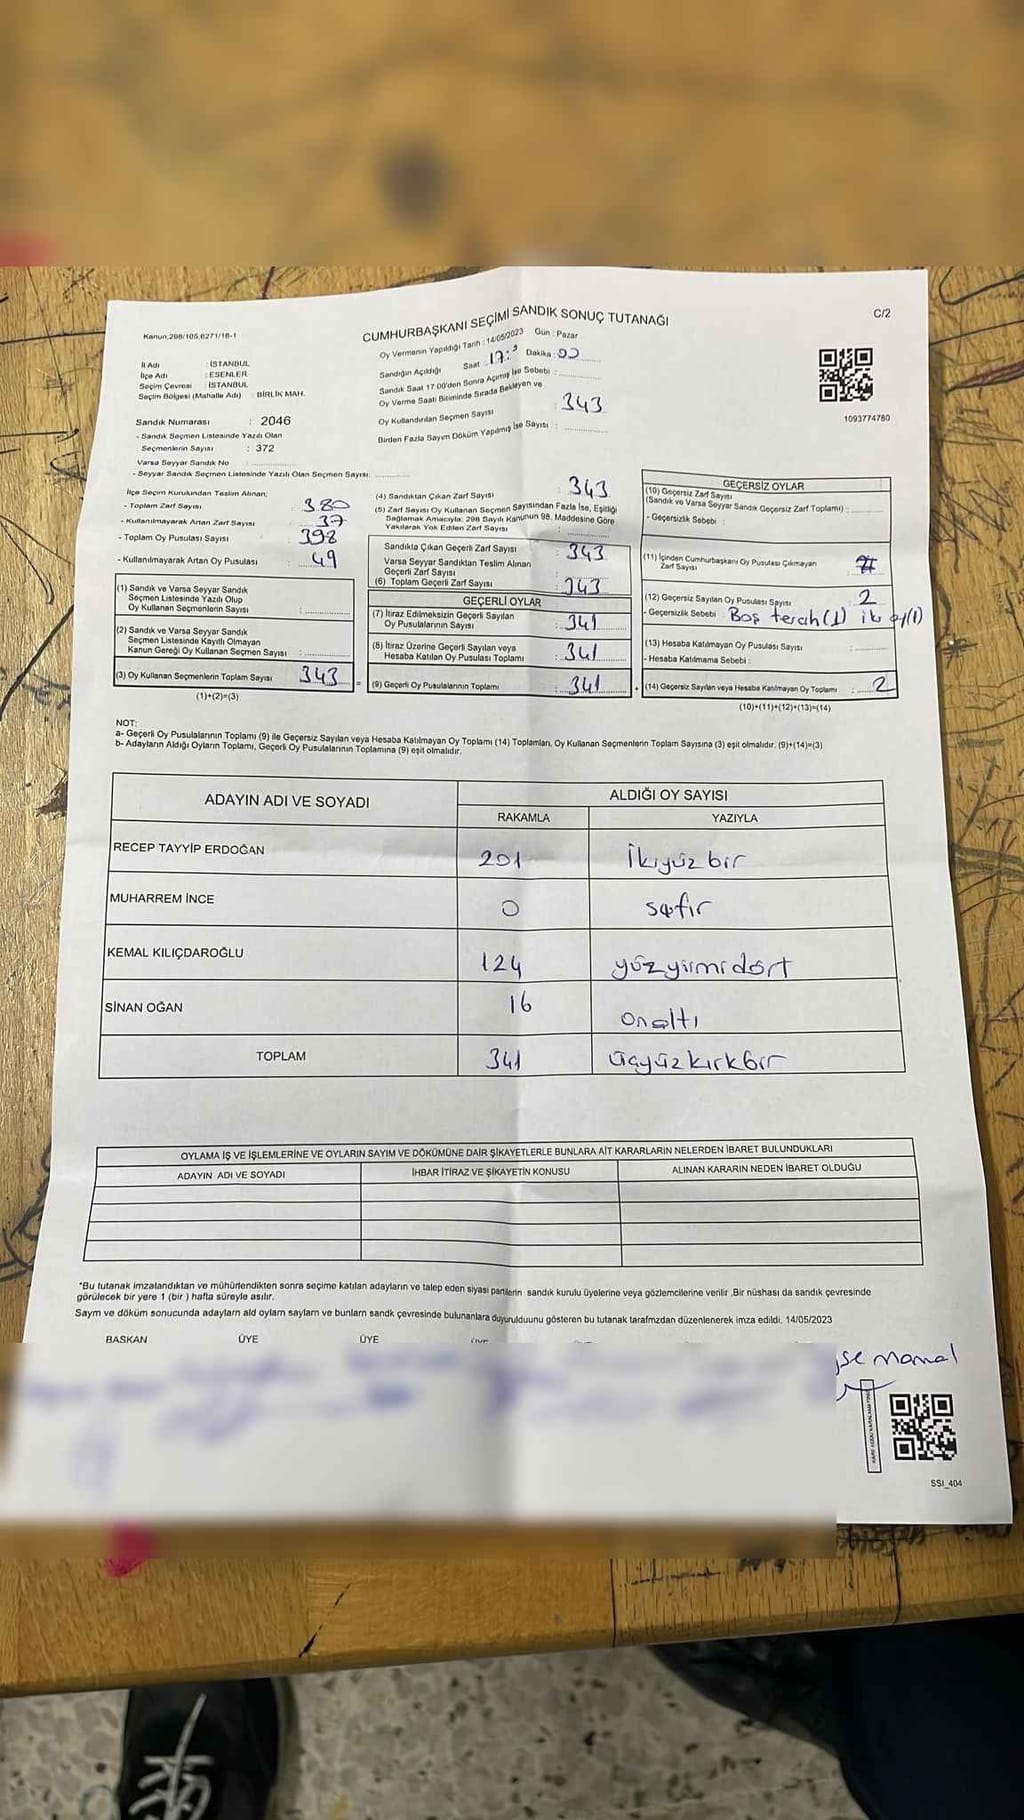 Kanun;298/105.6271/18-1
CUMHURBAŞKANI SEÇİMİ SANDIK SONUÇ TUTANAĞI
C/2
Oy Vermenin Yapıldığı Tarih : 14/05/2023 Gün : Pazar
Sandığın Açıldığı Saat 17:° Dakika 00
Sandık Saat 17.00'den Sonra Açımış İse Sebebi :
Oy Verme Saati Bitiminde Sırada Bekleyen ve
Oy Kullandırılan Seçmen Sayısı : 343
Birden Fazla Sayım Döküm Yapılmış İse Sayısı :
1093774780
İl Adı : İSTANBUL
İlçe Adı : ESENLER
Seçim Çevresi : İSTANBUL
Seçim Bölgesi (Mahalle Adı) : BİRLİK MAH.
Sandık Numarası : 2046
- Sandık Seçmen Listesinde Yazılı Olan
Seçmenlerin Sayısı : 372
Varsa Seyyar Sandık No
- Seyyar Sandık Seçmen Listesinde Yazılı Olan Seçmen Sayısı:
İlçe Seçim Kurulundan Teslim Alınan;
- Toplam Zarf Sayısı : 380
- Kullanılmayarak Artan Zarf Sayısı : 37
- Toplam Oy Pusulası Sayısı : 398
- Kullanılmayarak Artan Oy Pusulası : 49
(1) Sandık ve Varsa Seyyar Sandık
Seçmen Listesinde Yazılı Olup
Oy Kullanan Seçmenlerin Sayısı :
(2) Sandık ve Varsa Seyyar Sandık
Seçmen Listesinde Kayıtlı Olmayan
Kanun Gereği Oy Kullanan Seçmen Sayısı :
(3) Oy Kullanan Seçmenlerin Toplam Sayısı : 343
(1)+(2)=(3)
(4) Sandıktan Çıkan Zarf Sayısı : 343
(5) Zarf Sayısı Oy Kullanan Seçmen Sayısından Fazla İse, Eşitliği
Sağlamak Amacıyla; 298 Sayılı Kanunun 98. Maddesine Göre
Yakılarak Yok Edilen Zarf Sayısı :
Sandıkta Çıkan Geçerli Zarf Sayısı : 343
Varsa Seyyar Sandıktan Teslim Alınan
Geçerli Zarf Sayısı :
(6) Toplam Geçerli Zarf Sayısı : 343
GEÇERLİ OYLAR
(7) İtiraz Edilmeksizin Geçerli Sayılan
Oy Pusulalarının Sayısı : 341
(8) İtiraz Üzerine Geçerli Sayılan veya
Hesaba Katılan Oy Pusulası Toplamı : 341
(9) Geçerli Oy Pusulalarının Toplamı : 341
GEÇERSİZ OYLAR
(10) Geçersiz Zarf Sayısı
(Sandık ve Varsa Seyyar Sandık Geçersiz Zarf Toplamı) :
- Geçersizlik Sebebi :
(11) İçinden Cumhurbaşkanı Oy Pusulası Çıkmayan
Zarf Sayısı :
(12) Geçersiz Sayılan Oy Pusulası Sayısı : 2
- Geçersizlik Sebebi : Boş tercih(1) iki oy(1)
(13) Hesaba Katılmayan Oy Pusulası Sayısı :
- Hesaba Katılmama Sebebi :
(14) Geçersiz Sayılan veya Hesaba Katılmayan Oy Toplamı : 2
(10)+(11)+(12)+(13)=(14)
NOT:
a- Geçerli Oy Pusulalarının Toplamı (9) ile Geçersiz Sayılan veya Hesaba Katılmayan Oy Toplamı (14) Toplamları, Oy Kullanan Seçmenlerin Toplam Sayısına (3) eşit olmalıdır. (9)+(14)=(3)
b- Adayların Aldığı Oyların Toplamı, Geçerli Oy Pusulalarının Toplamına (9) eşit olmalıdır.
ADAYIN ADI VE SOYADI ALDIĞI OY SAYISI
RAKAMLA YAZIYLA
RECEP TAYYİP ERDOĞAN 201 İkiyüz bir
MUHARREM İNCE 0 sıfır
KEMAL KILIÇDAROĞLU 124 yüzyirmidört
SİNAN OĞAN 16 onaltı
TOPLAM 341 üçyüzkırkbir
OYLAMA İŞ VE İŞLEMLERİNE VE OYLARIN SAYIM VE DÖKÜMÜNE DAİR ŞİKAYETLERLE BUNLARA AİT KARARLARIN NELERDEN İBARET BULUNDUKLARI
ADAYIN ADI VE SOYADI İHBAR İTİRAZ VE ŞİKAYETİN KONUSU ALINAN KARARIN NEDEN İBARET OLDUĞU
*Bu tutanak imzalandıktan ve mühürlendikten sonra seçime katılan adayların ve talep eden siyasi partilerin sandık kurulu üyelerine veya gözlemcilerine verilir .Bir nüshası da sandık çevresinde
görülecek bir yere 1 (bir ) hafta süreyle asılır.
Sayım ve döküm sonucunda adayların ald oylam saylarn ve bunlarn sandk çevresinde bulunanlara duyurulduunu gösteren bu tutanak tarafmzdan düzenlenerek imza edildi. 14/05/2023
BASKAN ÜYE ÜYE
SSI_404